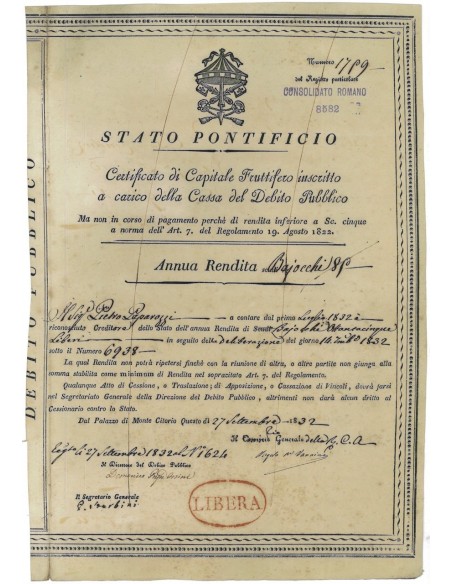 Numero 1789
del Registro particolare
CONSOLIDATO ROMANO
8582
STATO PONTIFICIO
Certificato di Capitale Fruttifero inscritto
a carico della Cassa del Debito Pubblico
Ma non in corso di pagamento perchè di rendita inferiore a Sc. cinque
a norma dell' Art. 7. del Regolamento 19. Agosto 1822.
Annua Rendita Bajocchi 85
Il Sig. Pietro a contare dal primo Luglio 1832 è
riconosciuto Creditore dello Stato dell'annua Rendita di Scudi Bajocchi Ottantacinque
Liberi in seguito della del giorno 14 1832
sotto il Numero 6938
La qual Rendita non potrà ripetersi finchè con la riunione di altra, o altre partite non giunga alla
somma stabilita come minimum di Rendita nel sopracitato Art. 7. del Regolamento.
Qualunque Atto di Cessione, o Traslazione; di Apposizione, o Cassazione di Vincoli, dovrà farsi
nel Segretariato Generale della Direzione del Debito Pubblico, altrimenti non darà alcun dritto al
Cessionario contro lo Stato.
Dal Palazzo di Monte Citorio Questo dì 27 Settembre 1832
Il Commiss Generale della R. C. A
li 27 Settembre 1832 al N. 1624
Il Direttore del Debito Pubblico
Il Segretario Generale
LIBERA
DEBITO PUBBLICO